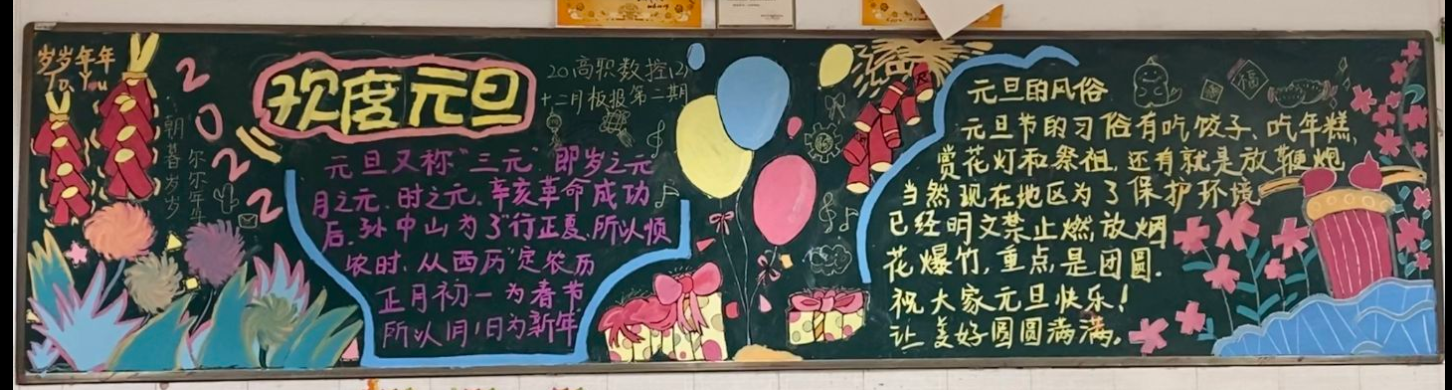 岁岁年年
To You
2022
朝暮岁岁
尔尔年年
欢度元旦
20高职数控(2)
十二月板报第二期
元旦又称“三元”即岁之元
月之元.时之元.辛亥革命成功
后.孙中山为了“行正夏.所以顺
农时.从西历”定农历
正月初一为春节
所以1月1日为新年
元旦的风俗
福
元旦节的习俗有吃饺子、吃年糕,
赏花灯和祭祖.还有就是放鞭炮
当然现在地区为了保护环境
已经明文禁止燃放烟
花爆竹,重点是团圆.
祝大家元旦快乐!
让美好圆圆满满。